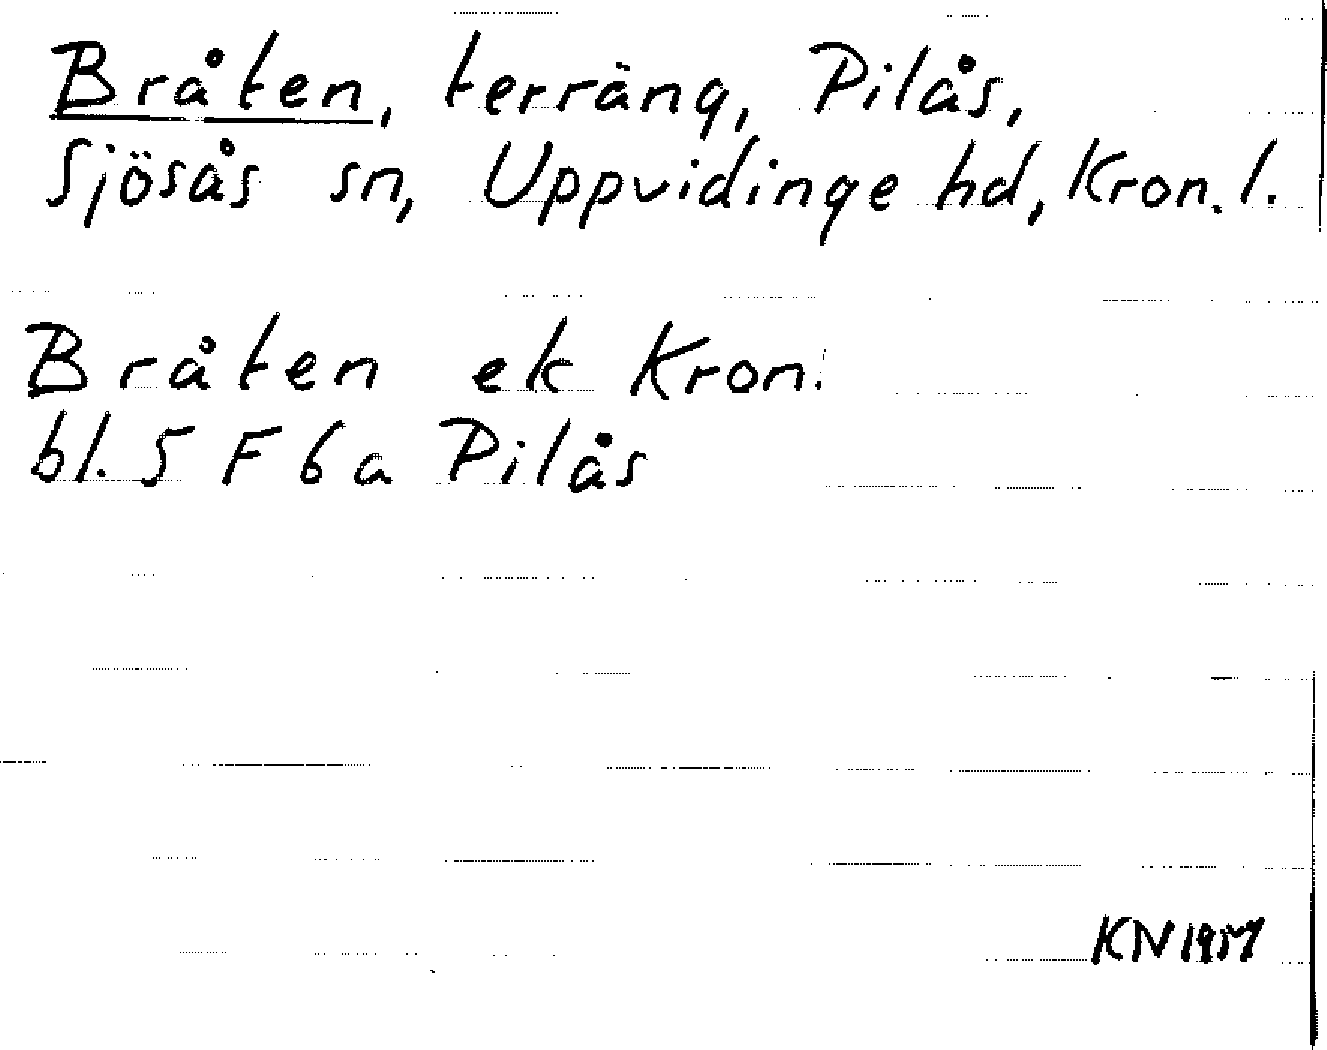 Bråten, terräng, Pilås,
Sjösås sn, Uppvidinge hd, Kron. l.
Bråten ek Kron.
bl. 5 F 6 a Pilås
KN 1957